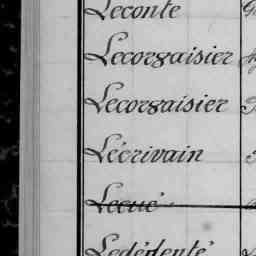 Leconte
Lecorgaisier
Lecorgaisier
Lécrivain
Lecué
Ledédenté